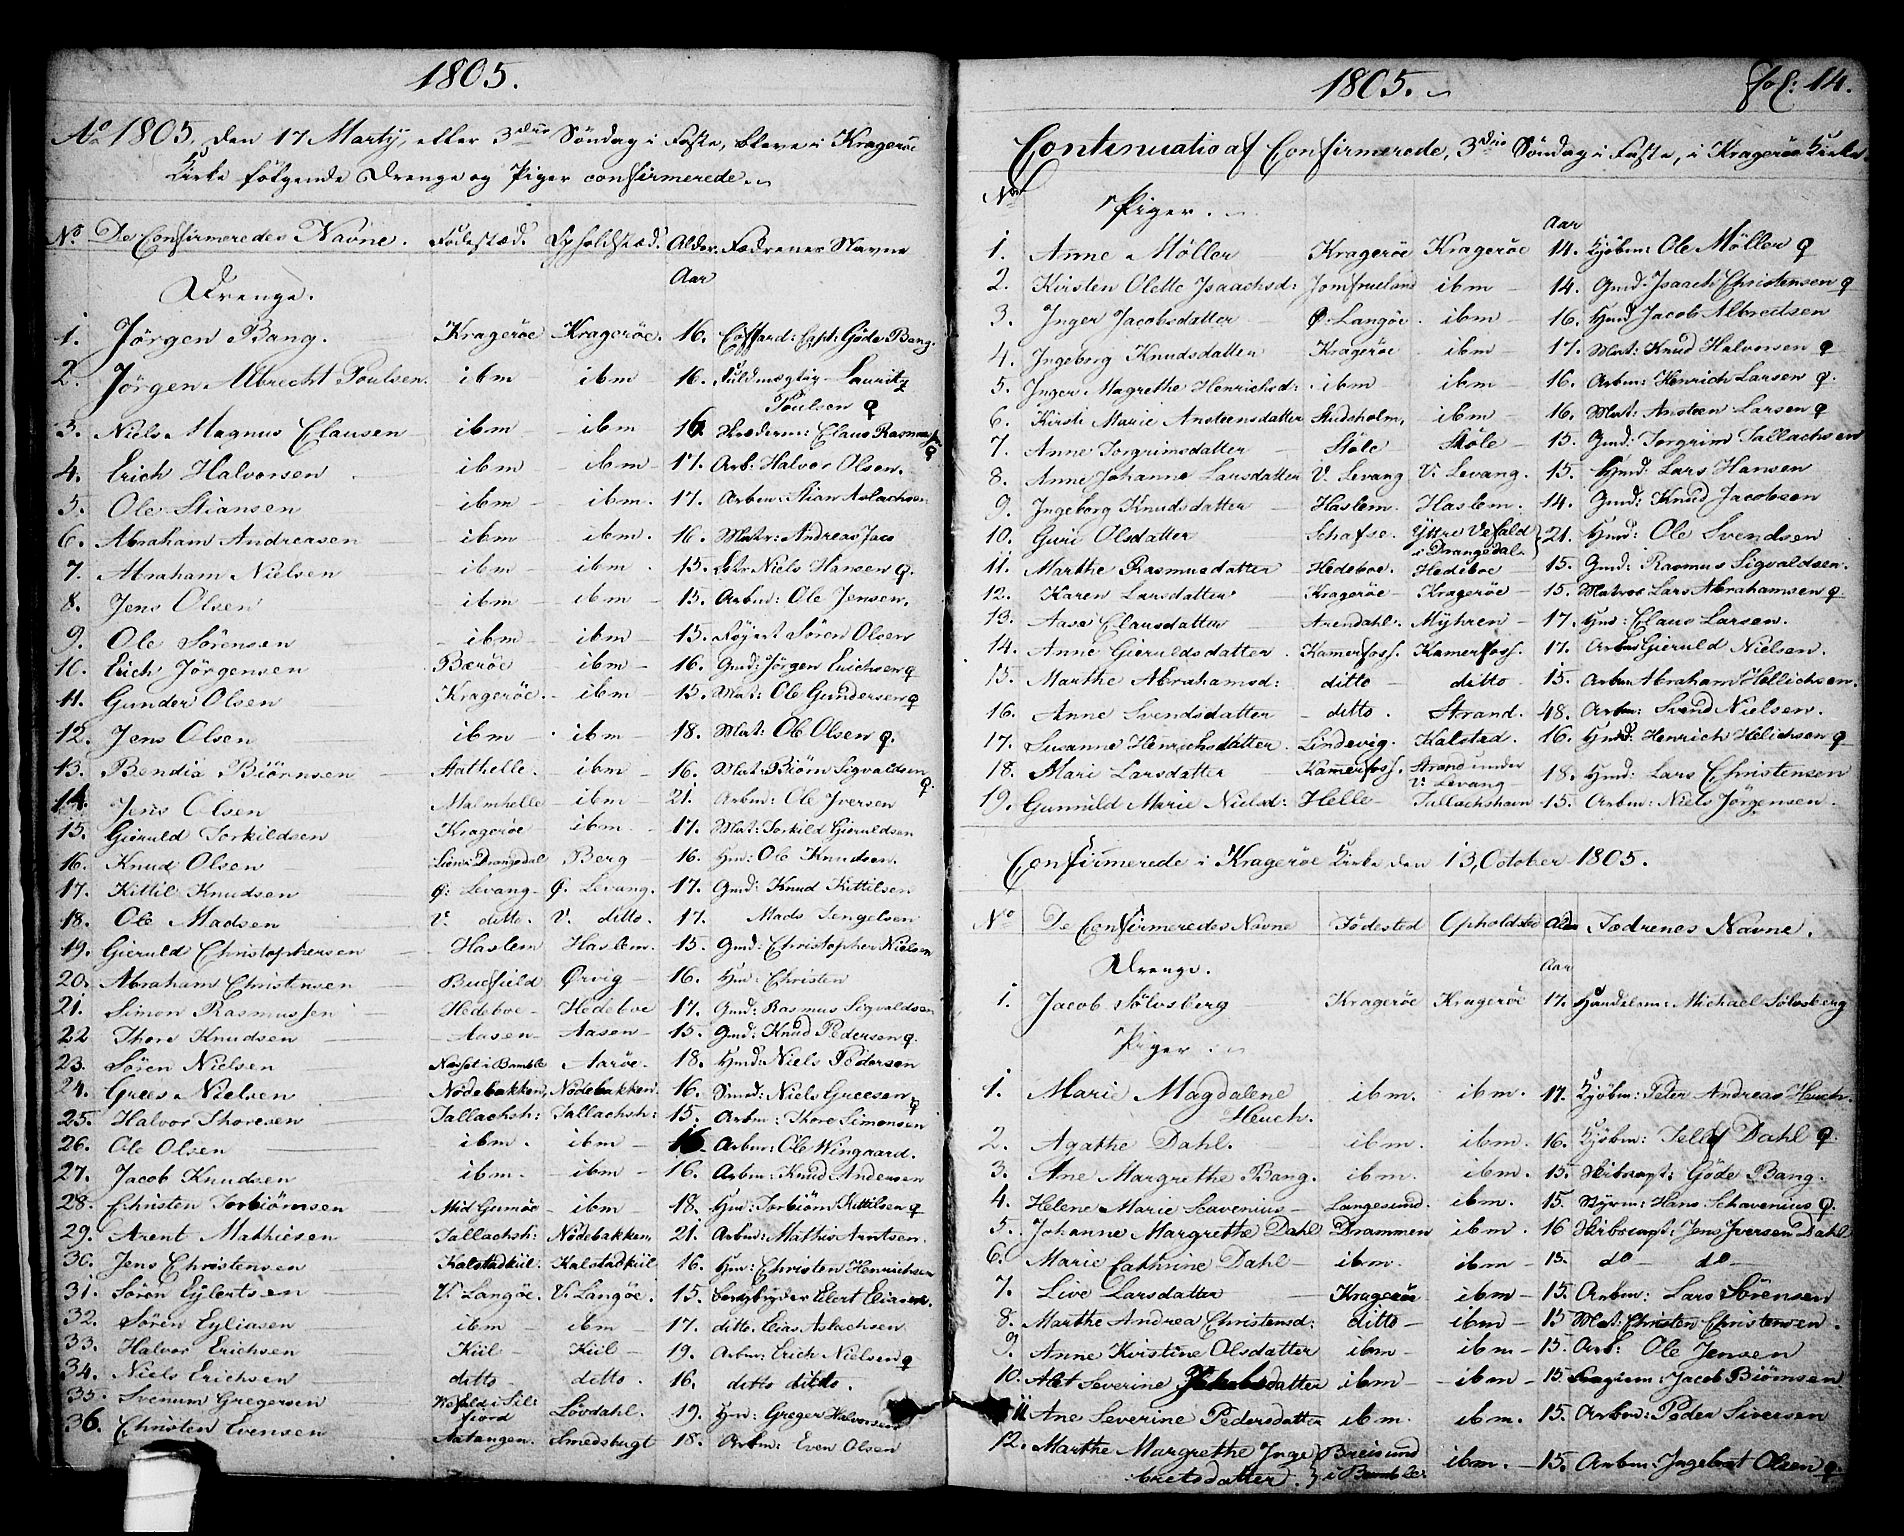 1805.
Ao 1805, den 17 Martij, eller 3die Söndag i Faste, bleve i Kragerøe
Kirke følgende Drenge og Piger confirmerede.
No De Confirmeredes Navne. Födestæd. Opholdstæd. Alder. Fædrenes Navne
Aar
Drenge.
1. Jörgen Bang. Kragerøe Kragerøe. 16. Coffard: Capt: Gøde Bang.
2. Jörgen Albrecht Poulsen. ibm ibm 16. Fuldmægtig Lauritz
Poulsen
3. Niels Magnus Clausen ibm ibm 16. Skræderm: Claus Rasmussen
4. Erich Halvorsen ibm ibm 17. Arb: Halvor Olsen.
5. Ole Stiansen ibm ibm. 17. Arbm: Stian Aslachsen
6. Abraham Andreasen ibm ibm. 16. Matr: Andreas Jaco
7. Abraham Nielsen ibm ibm. 15. Niels Hansen
8. Jens Olsen ibm ibm 15. Arbm: Ole Jensen.
9. Ole Sörensen ibm ibm 15. Søren Olsen
10. Erich Jörgensen Bærøe ibm 16. Gmd: Jörgen Erichsen
11. Gunder Olsen Kragerøe. ibm 15. Mat: Ole Gundersen
12. Jens Olsen ibm ibm 18. Mat: Ole Olsen
13. Bendix Biörnsen Stathelle. ibm 16. Mat: Biörn Sigvaldsen
14. Jens Olsen Malmhelle ibm 21. Arbm: Ole Iversen
15. Gieruld Torkildsen Kragerøe ibm. 17. Mat: Torkild Gieruldsen
16. Knud Olsen Drangedal Berg 16. Hm: Ole Knudsen.
17. Kittil Knudsen Ø: Levang Ø. Levang. 17. Gmd: Knud Kittilsen
18. Ole Madsen V. ditto. V. ditto. 17. Mads Tengelsen
19. Gieruld Christophersen Haslem Haslem. 15. Gmd: Christopher Nielsen
20. Abraham Christensen Buefield Ørvig 16. Hm: Christen
21. Simon Rasmussen Hedeboe Hedeboe 17. Gmd: Rasmus Sigvaldsen
22 Thore Knudsen Aasen Aasen 15. Gmd: Knud Pedersen
23. Sören Nielsen i Bamble Aarøe. 18. Hmd: Niels Pedersen
24. Grees Nielsen Nødebakken, Nødebakken. 16. Niels Greesen
25. Halvor Thoresen Tallachsh: Tallachsh: 15. Arbm: Thore Simonsen
26. Ole Olsen ibm. ibm 16 Arbm: Ole Wingaard.
27. Jacob Knudsen ibm. ibm 16. Arbm: Knud Andersen
28. Christen Torbiörnsen Mid Gumøe ibm 18. Hm: Torbiörn Kittilsen
29. Arent Mathiesen Tallachsh: Nødebakken 21. Arbm: Mathis Arntsen.
30. Jens Christensen Kalstadkiil Kalstadkiil 16. Hm: Christen Henrichsen
31. Sören Eylertsen V. Langøe. V. Langøe. 15. Eilert Eliasen.
32. Sören Eyliasen ibm ibm 17. ditto. Elias Aslachsen
33. Halvor Erichsen Kiil Kiil 19. Arbm: Erich Nielsen
34. Niels Erichsen ditto ditto. 16. ditto ditto.
35. Svenum Gregersen Wefald i Sil-
fiord Løvdahl. 19. Hm: Greger Halvorsen
36. Christen Evensen Aatangen. Smedsbugt 18. Arbm: Even Olsen
1805. fol: 14.
Continuatio af Confirmerede, 3die Söndag i Faste, i Kragerøe Kirke
No
Piger.
Aar
1. Anne Möller Kragerøe Kragerøe 14. Kjöbm: Ole Möller
2. Kirsten Olette Isaachsd: Jomfrueland ibm 14. Gmd: Isaach Christensen
3. Inger Jacobsdatter Ø. Langøe. ibm 16. Hmd Jacob Albretsen
4. Ingeborg Knudsdatter Kragerøe ibm 17. Mat: Knud Halvorsen
5. Inger Magrethe Henrichsd: ibm ibm 16. Arbm: Henrich Larsen
6. Kirsti Marie Ansteensdatter Studsholm, ibm 16. Mat: Ansteen Larsen
7. Anne Torgrimsdatter Støle Støle 15. Gmd: Torgrim Tallachsen
8. Anne Johanne Larsdatter V. Levang V. Levang. 15. Hmd: Lars Hansen
9. Ingeborg Knudsdatter Haslem. Haslem. 14. Gmd: Knud Jacobsen
10. Guri Olsdatter Schafse. Yttre Vefald
i Drangedal. 21. Hmd: Ole Svendsen
11. Marthe Rasmusdatter Hedeboe. Hedeboe 15. Gmd: Rasmus Sigvaldsen.
12. Karen Larsdatter Kragerøe Kragerøe 15. Matros Lars Abrahamsen
13. Aase Clausdatter Arendahl. Myhren 17. Hm: Claus Larsen.
14. Anne Gieruldsdatter Kamerfoss. Kamerfoss. 17. Arbm Gieruld Nielsen.
15. Marthe Abrahamsd: ditto ditto 15. Arbm Abraham Hellichsen.
16. Anne Svendsdatter ditto. Strand. 48. Arbm: Svend Nielsen.
17. Susanne Henrichsdatter. Lindevig. Kalstad. 16. Hmd: Henrich Helichsen
18. Mari Larsdatter Kamerfoss. Strand under
V: Levang 18. Hmd: Lars Christensen
19. Gunnild Marie Nielsd: Helle Tallachshavn 15. Arbm: Niels Jörgensen.
Confirmerede i Kragerøe Kirke den 13, October 1805.
No De Confirmeredes Navne Födested Opholdsted Alder Fædrenes Navne.
Aar
Drenge.
1. Jacob Sölvsberg Kragerøe Kragerøe 17. Handelsm: Michael Sölvsberg
Piger
1. Marie Magdalene
Heuch. ibm. ibm. 17. Kjöbm: Peter Andreas Heuch.
2. Agathe Dahl. ibm. ibm. 16. Kjöbm: Tellef Dahl
3. Ane Margrethe Bang. ibm. ibm. 15. Skibscapt: Göde Bang.
4. Helene Marie Scavenius Langesund. ibm. 15. Byem: Hans Schavenius
5. Johanne Margrethe Dahl Drammen ibm. 16 Skibscapt: Jens Iversen Dahl
6. Marie Cathrine Dahl ibm. ibm. 15. do do
7. Live Larsdatter Kragerøe ibm 15. Arbm: Lars Sörensen
8. Marthe Andrea Christensd: ditto ibm 15 Mat: Christen Christensen.
9. Anne Kristine Olsdatter ibm ibm 15. Arb: Ole Jensen
10. Alet Severine Jakobsdatter ibm ibm 15. Jacob Biörnsen.
11 Ane Severine Pedersdatter ibm. ibm. 15. Arbm: Peder Siversen
12. Marthe Margrethe Inge-
bretsdatter. Breisund
i Bamble ibm. 15. Arbm: Ingebret Olsen